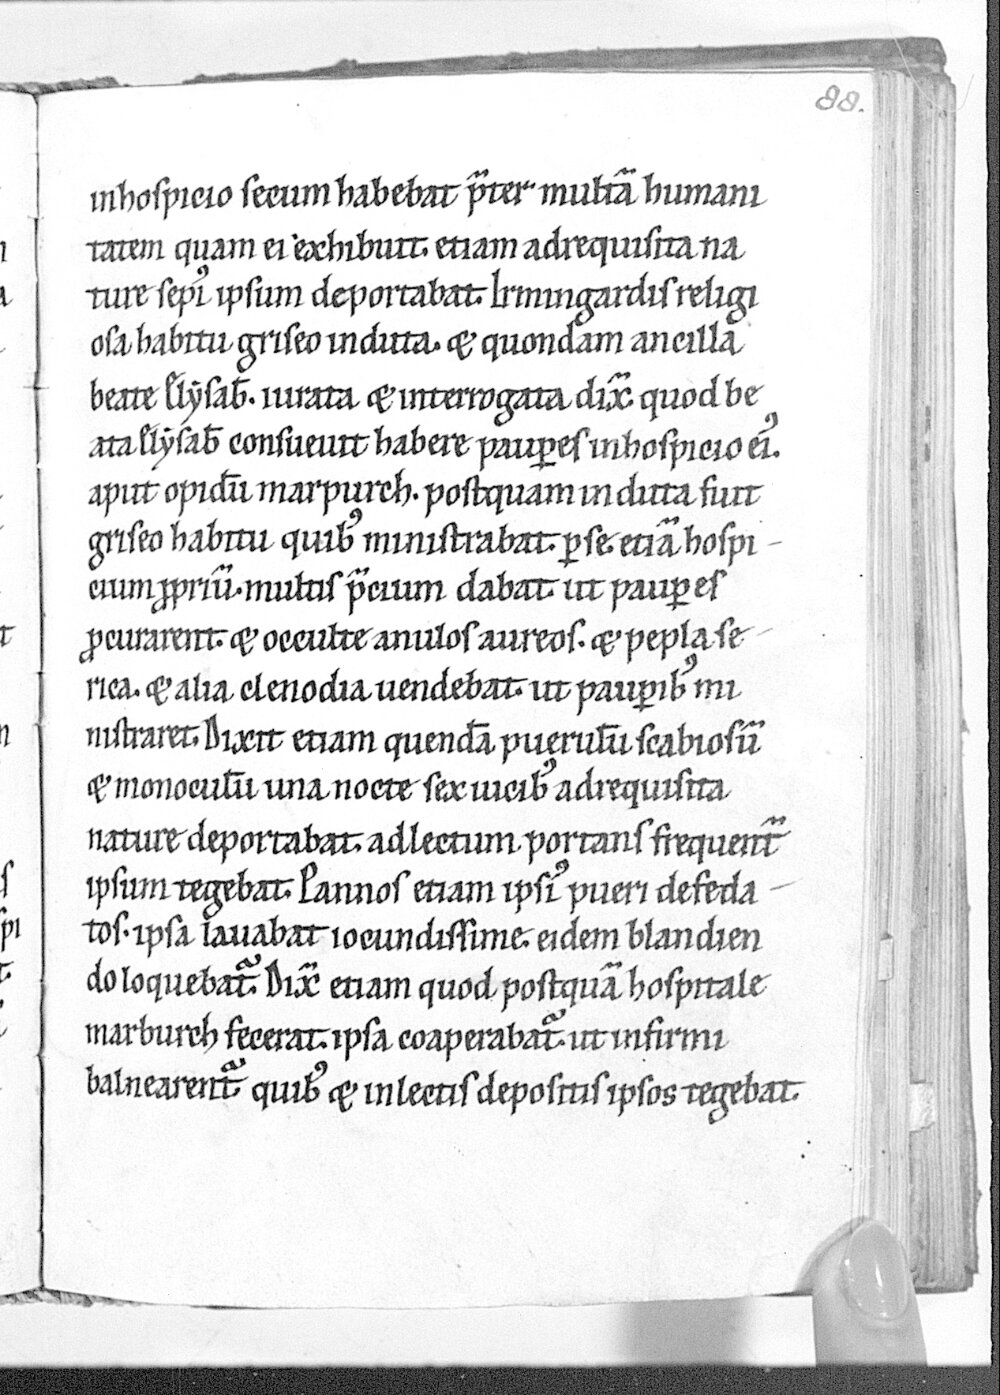 88.
inhospicio secum habebat p̃ter multã humani
tatem quam ei exhibuit. etiam adrequisita na
ture sepi᾽ ipsum deportabat. Irmingardis religi
osa habitu griseo induta. & quondam ancilla
beate Elẏsab̄. iurata & interrogata dix̃ quod be
ata Elẏsab̄ consueuit habere paup̲es inhospicio ei᾽.
aput opidū marpurch. postquam induta fuit
griseo habitu quib᾽ ministrabat. p̲ se. etiã hospi-
cium ꝓpriũ. multis p̃cium dabat. ut paup̲es
ꝓcurarent. & occulte anulos aureos. & pepla se-
rica. & alia clenodia uendebat. ut paup̲ib᾽ mi
nistraret. Dixit etiam quendã puerulū scabiosũ
& monoculū una nocte sex uicib᾽ adrequisita
nature deportabat. adlectum portans frequent̃
ipsum tegebat. Pannos etiam ipsi᾽ pueri defeda-
tos. ipsa lauabat iocundissime. eidem blandien
do loquebat̃. Dix̃ etiam quod postquã hospitale
marburch fecerat. ipsa coaperabat̃. ut infirmi
balnearent̃ quib᾽ & inlectis depositis ipsos tegebat.